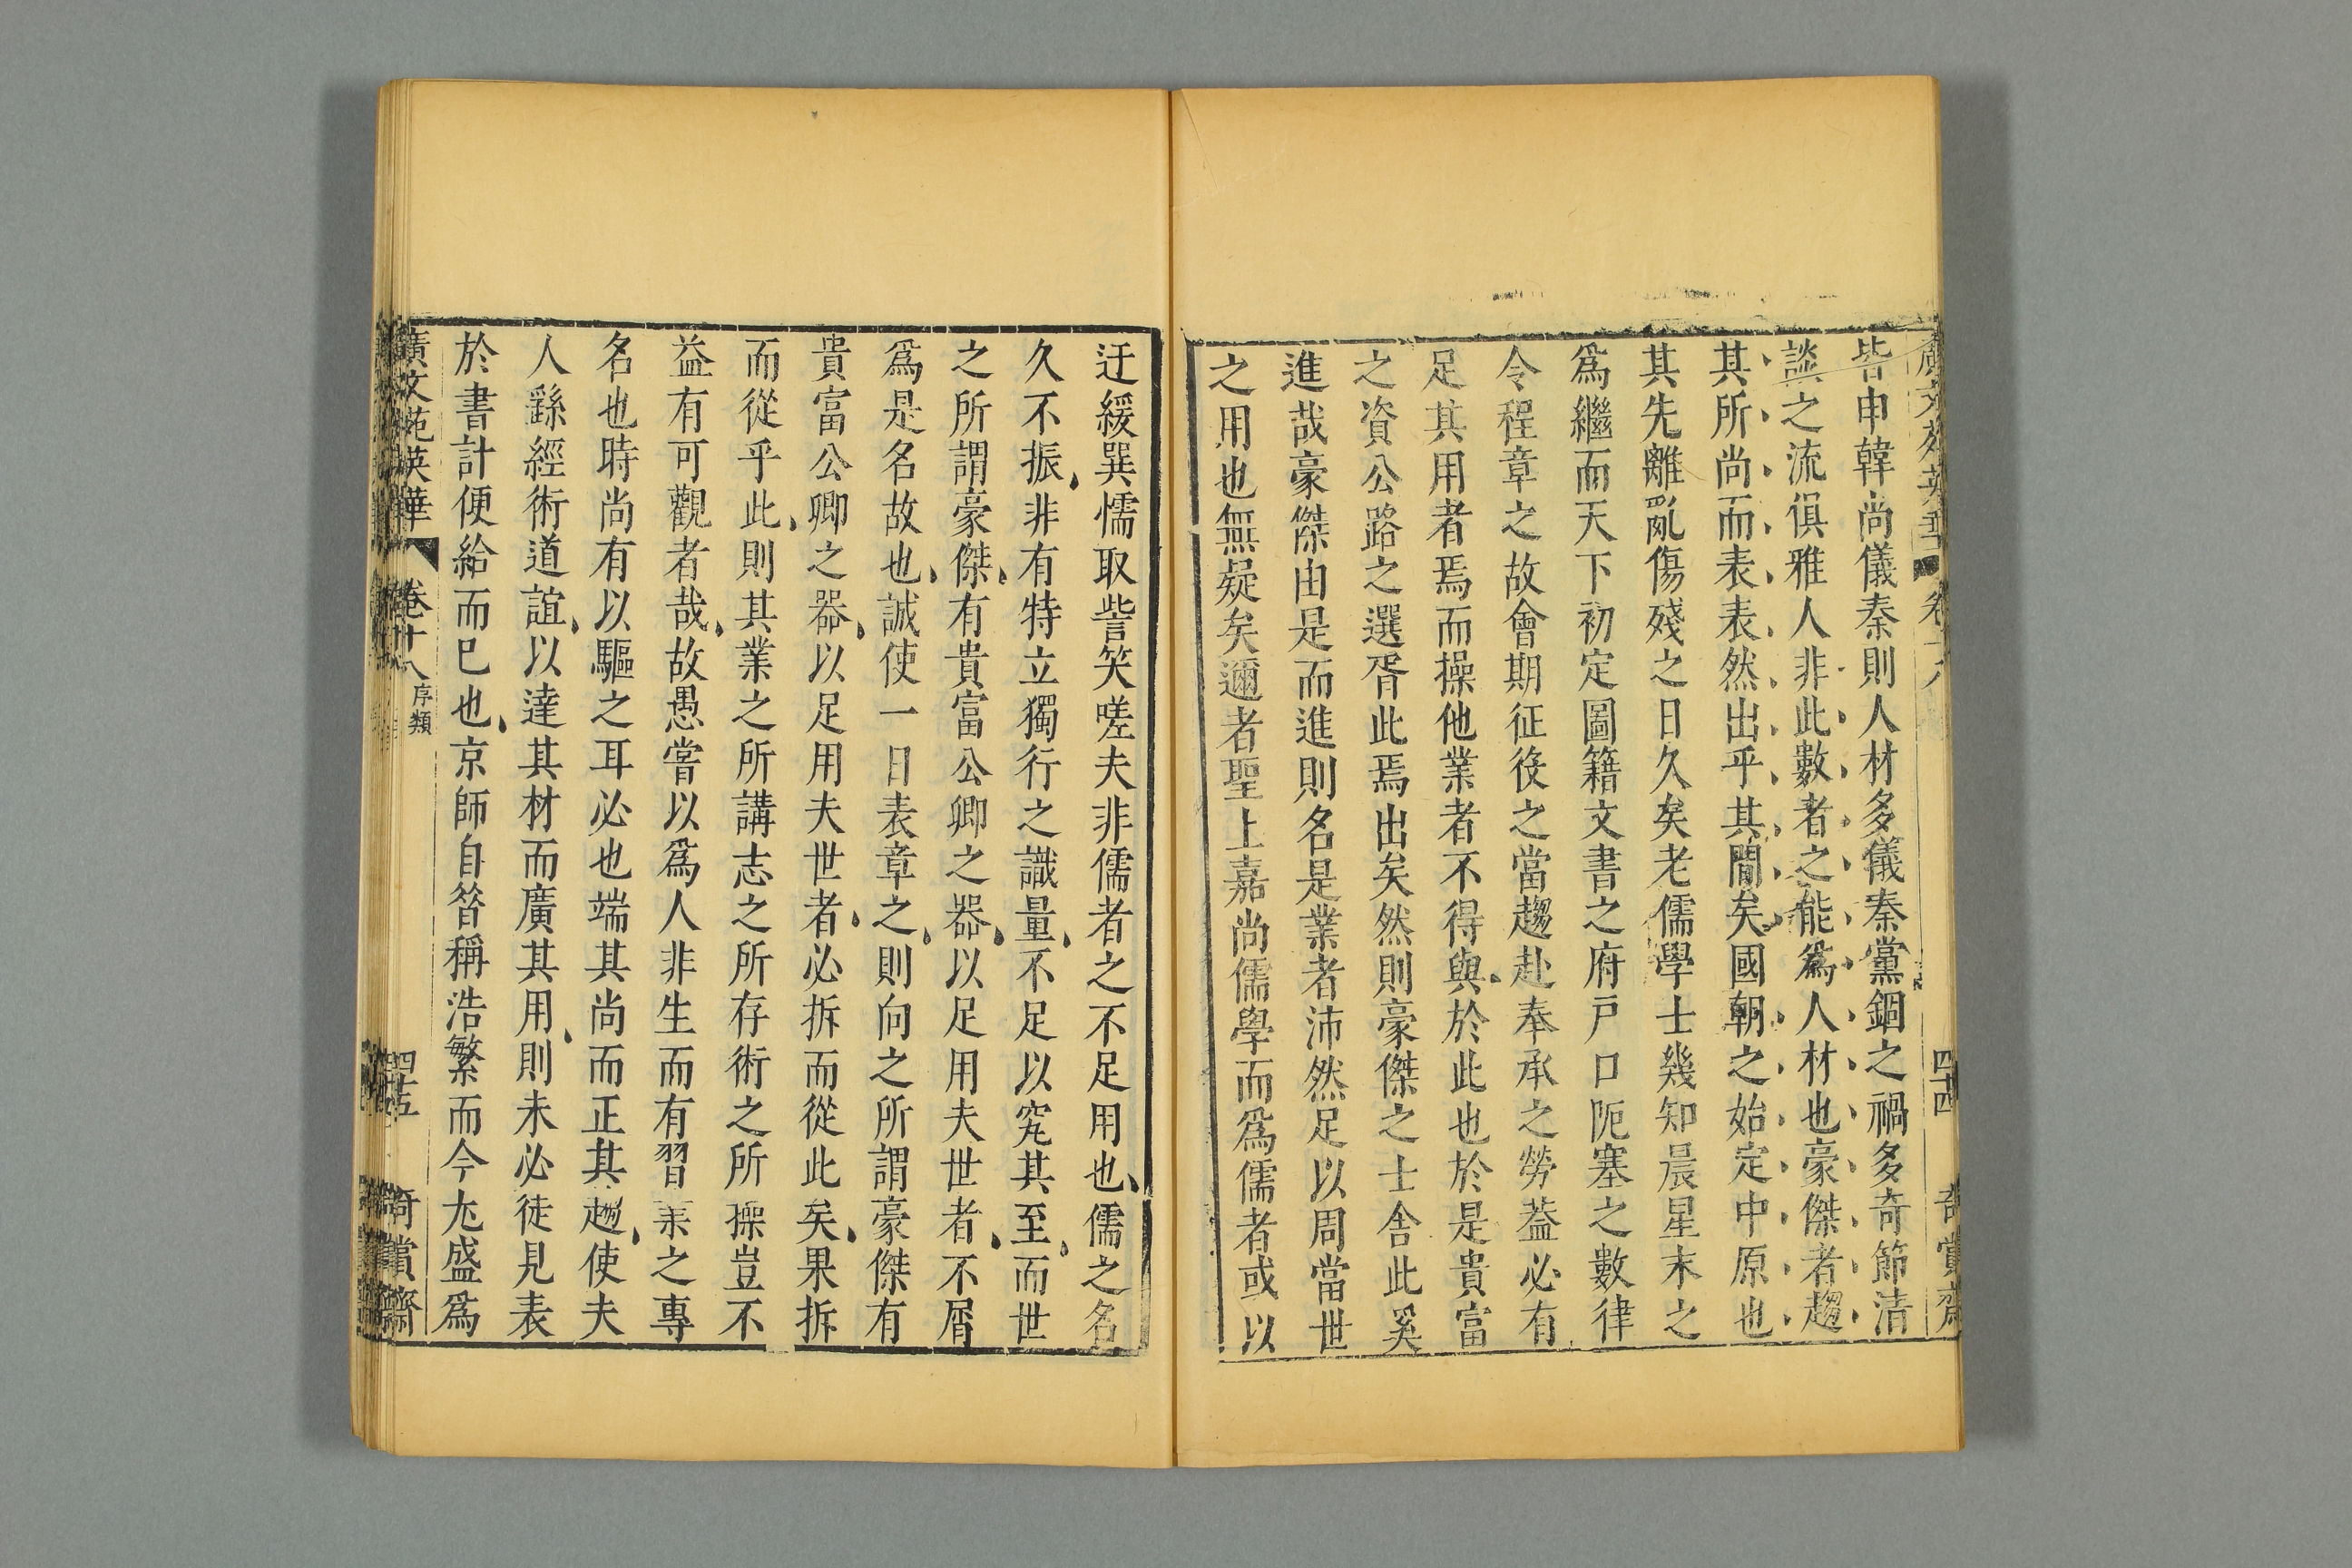 廣文苑英華
卷十八
四十四
奇賞齋
皆申韓尚儀秦則人材多儀秦黨錮之禍多奇節清
談之流俱雅人非此數者之能爲人材也豪傑者趨
其所尚而表表然出乎其間矣國朝之始定中原也
其先離亂傷殘之日久矣老儒學士幾知晨星末之
爲繼而天下初定圖籍文書之府戸口阨塞之數律
令程章之故會期征役之當趨赴奉承之勞葢必有
足其用者焉而操他業者不得與於此也於是貴富
之資公路之選胥此焉出矣然則豪傑之士舍此奚
進哉豪傑由是而進則名是業者沛然足以周當世
之用也無疑矣邇者聖上嘉尚儒學而爲儒者或以
迂緩巽懦取訾笑嗟夫非儒者之不足用也儒之名
久不振非有特立獨行之識量不足以究其至而世
之所謂豪傑有貴富公卿之器以足用夫世者不屑
爲是名故也誠使一日表章之則向之所謂豪傑有
貴富公卿之器以足用夫世者必拆而從此矣果拆
而從乎此則其業之所講志之所存術之所操豈不
益有可觀者哉故愚嘗以爲人非生而有習業之專
名也時尚有以驅之耳必也端其尚而正其趨使夫
人繇經術道誼以達其材而廣其用則未必徒見表
於書計便給而已也京師自昝稱浩繁而今尢盛爲
廣文苑英華
卷十八
序類
四十五
奇賞齋